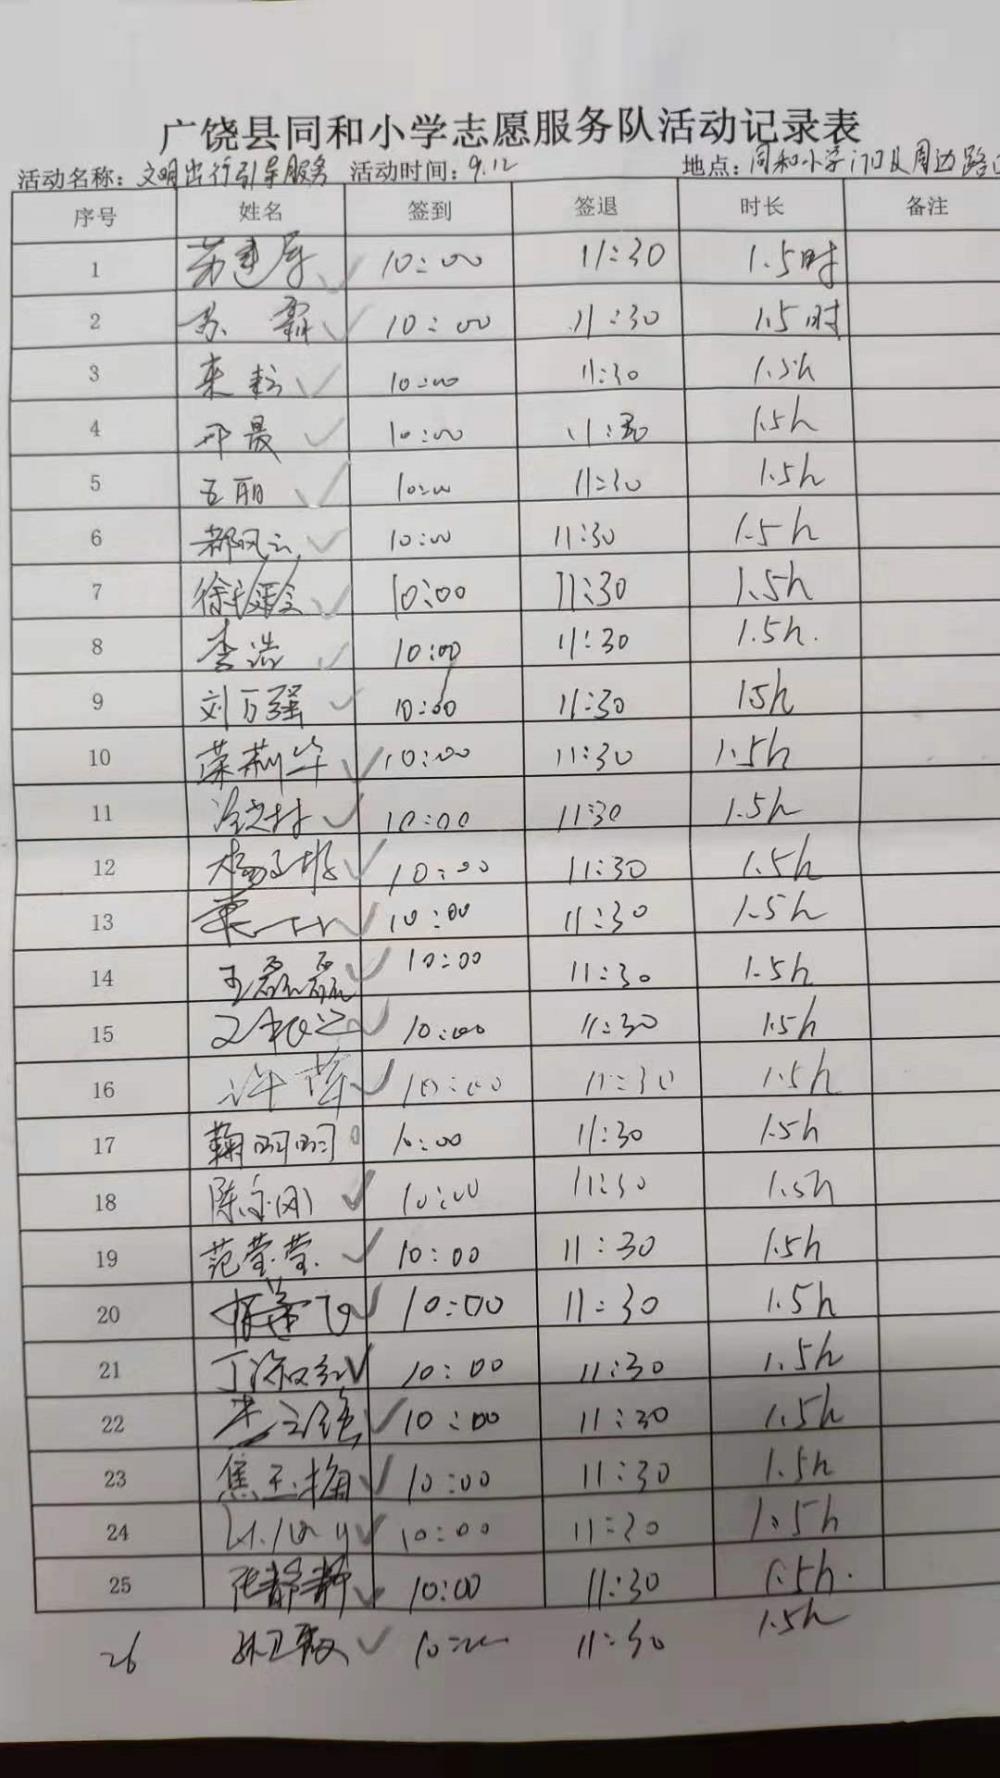 广饶县同和小学志愿服务队活动记录表
活动名称：文明出行引导服务 活动时间：9.12 地点：同和小学门口及周边路口
序号 姓名 签到 签退 时长 备注
1 10:00 11:30 1.5时
2 苏霸 10:00 11:30 1.5时
3 10:00 11:30 1.5h
4 10:00 11:30 1.5h
5 王丽 10:00 11:30 1.5h
6 郝风云 10:00 11:30 1.5h
7 10:00 11:30 1.5h
8 李浩 10:00 11:30 1.5h.
9 刘万强 10:00 11:30 15h
10 荣莉华 10:00 11:30 1.5h
11 10:00 11:30 1.5h
12 10:00 11:30 1.5h
13 10:00 11:30 1.5h
14 王磊磊 10:00 11:30 1.5h
15 10:00 11:30 1.5h
16 许萍 10:00 11:30 1.5h
17 鞠丽丽 10:00 11:30 1.5h
18 陈宝刚 10:00 11:30 1.5h
19 范莹莹 10:00 11:30 1.5h
20 10:00 11:30 1.5h
21 10:00 11:30 1.5h
22 10:00 11:30 1.5h
23 焦玉梅 10:00 11:30 1.5h
24 10:00 11:30 1.5h
25 张静静 10:00 11:30 1.5h.
26 10:00 11:30 1.5h